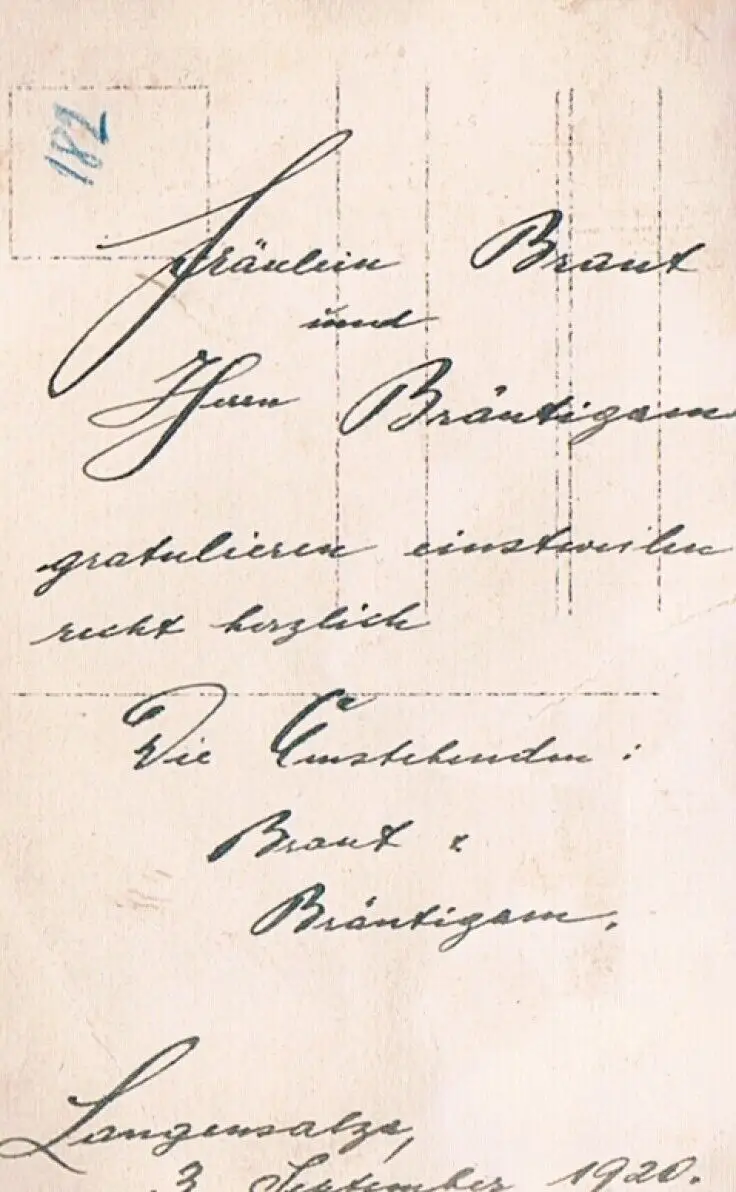 182
Fräulein Braut
und
Herrn Bräutigam
gratulieren einstweilen
recht herzlich
Die Umstehenden:
Braut &
Bräutigam.
Langensalza,
3 September 1920.